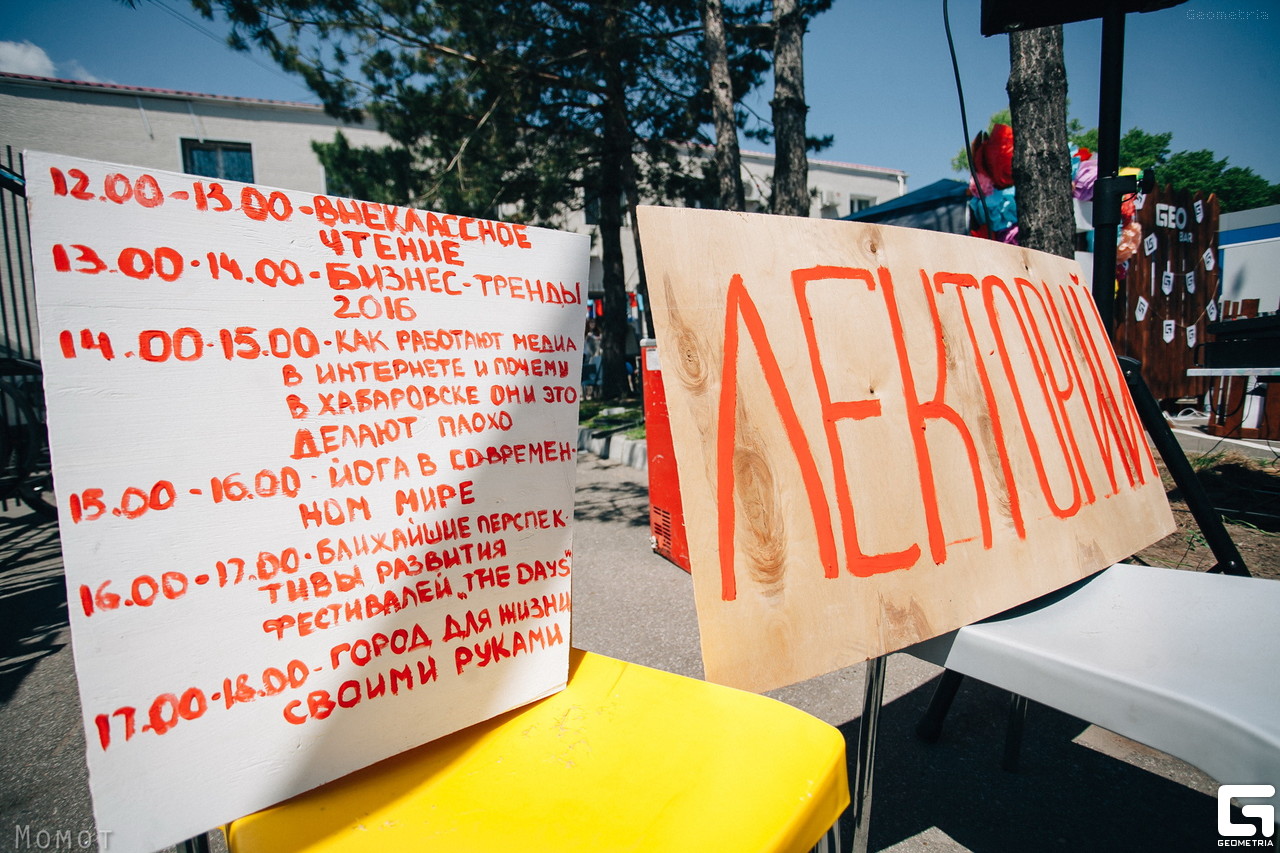 12.00-13.00-ВНЕКЛАССНОЕ
ЧТЕНИЕ
13.00-14.00-БИЗНЕС-ТРЕНДЫ
2016
14.00-15.00-КАК РАБОТАЮТ МЕДИА
В ИНТЕРНЕТЕ И ПОЧЕМУ
В ХАБАРОВСКЕ ОНИ ЭТО
ДЕЛАЮТ ПЛОХО
15.00-16.00-ЙОГА В СОВРЕМЕН-
НОМ МИРЕ
16.00-17.00-БЛИЖАЙШИЕ ПЕРСПЕК-
ТИВЫ РАЗВИТИЯ
ФЕСТИВАЛЕЙ „THE DAYS"
17.00-18.00-ГОРОД ДЛЯ ЖИЗНИ
СВОИМИ РУКАМИ
ЛЕКТОРИЙ
GEO
BAR
Geometria
Момот
GEOMETRIA